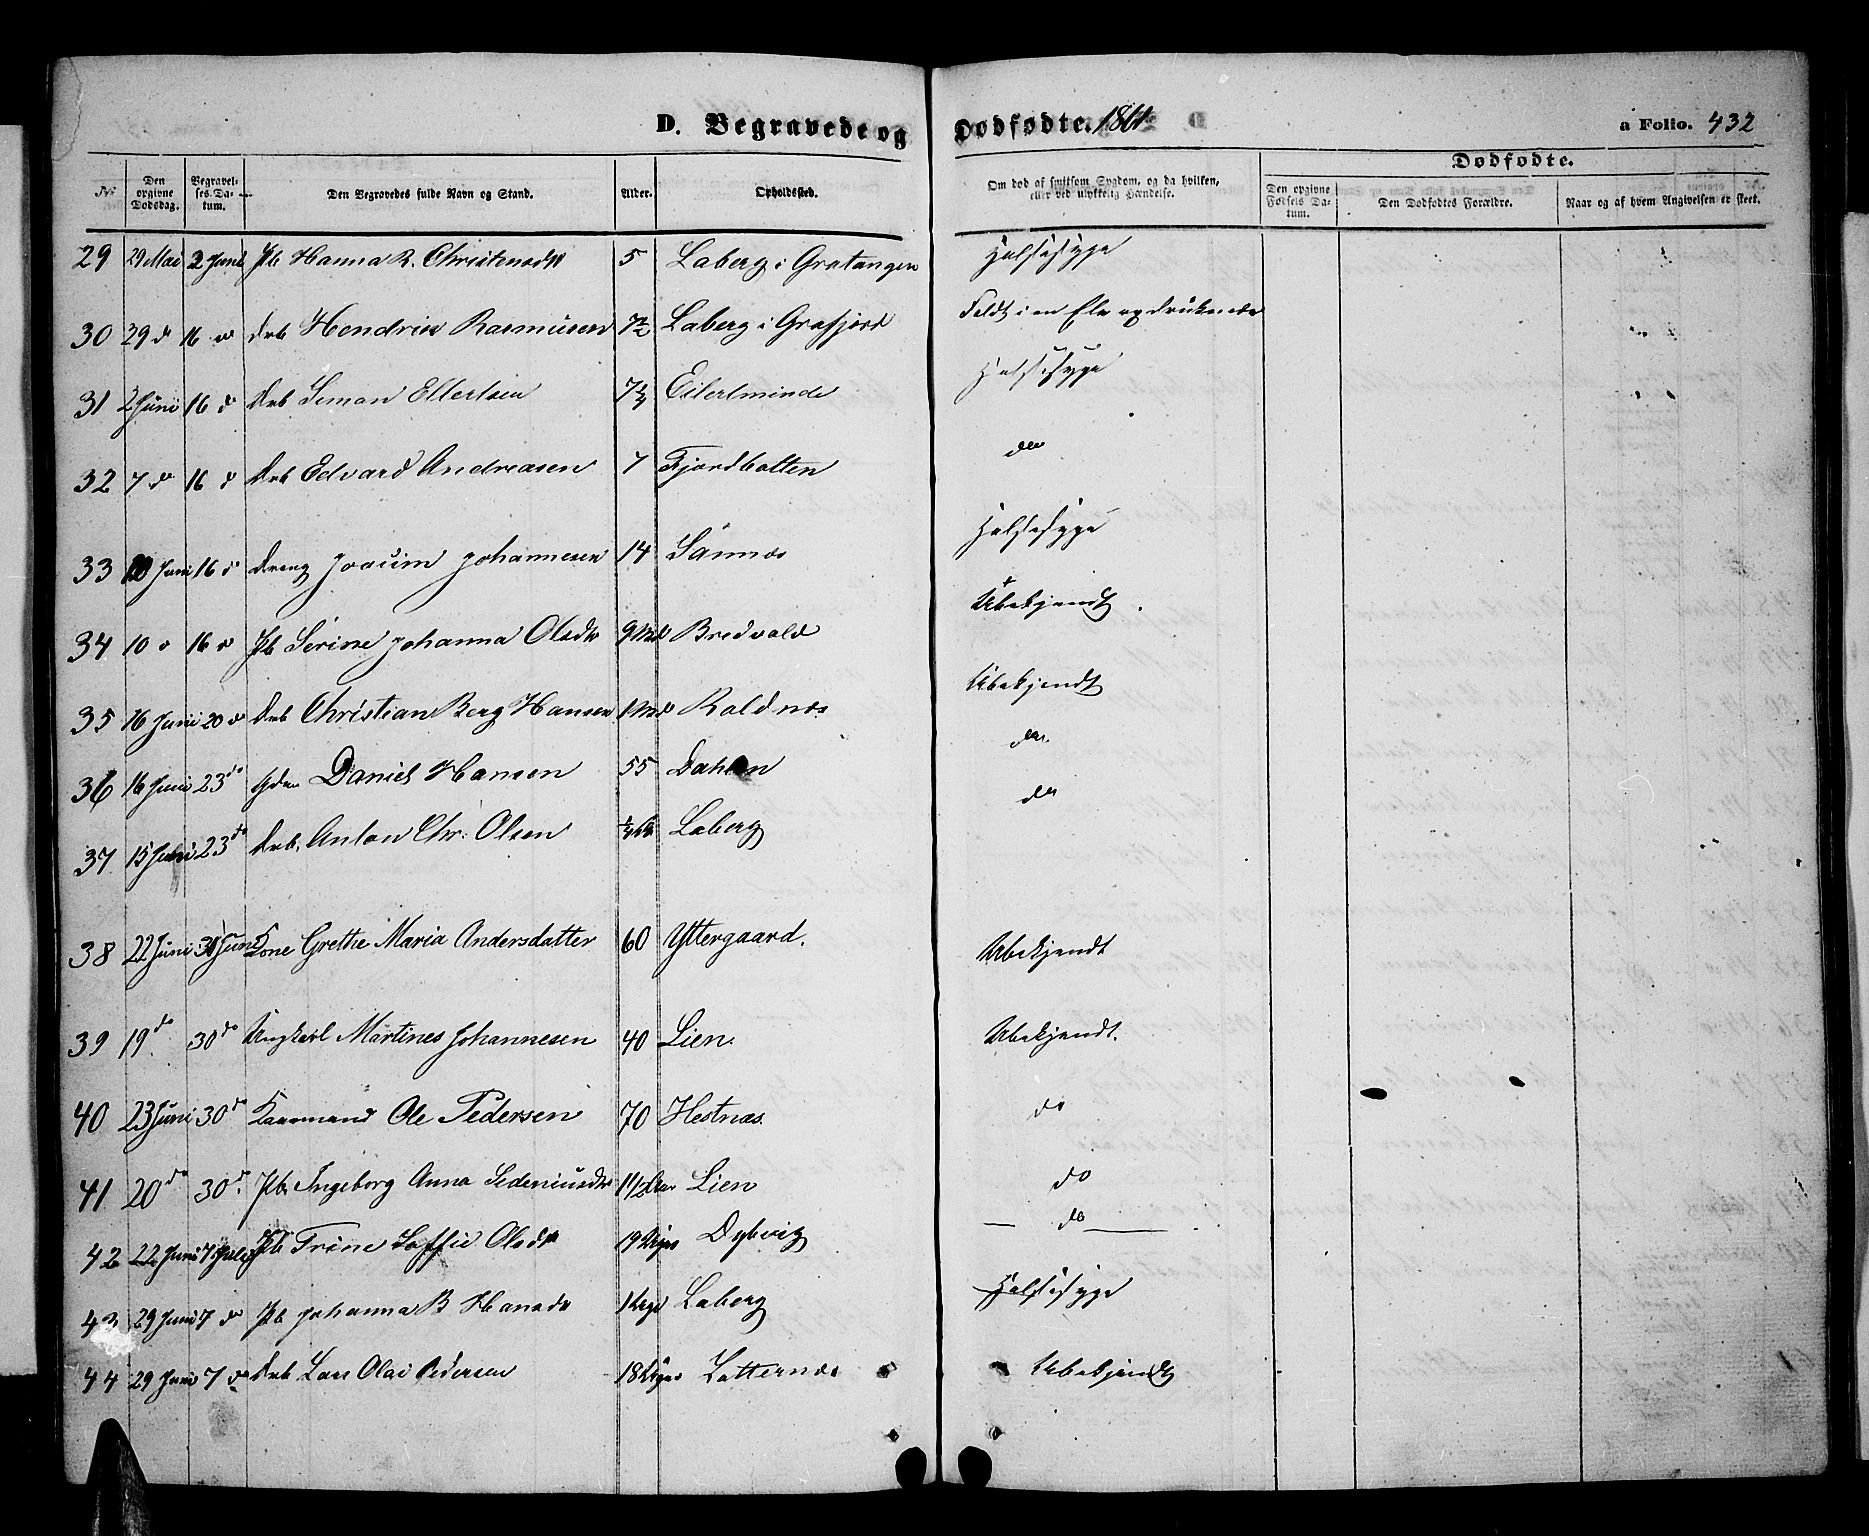 D. Begravede og Dødfødte. 1861 a Folio. 432
Dødfødte.
No Den opgivne Dødsdag. Begravelses-Datum. Den Begravedes fulde Navn og Stand. Alder. Opholdssted. Om død af smitsom Sygdom, og da hvilken, eller ved ulykkelig Hændelse. Den opgivne Fødsels Datum. Den Dødfødtes Forældre. Naar og af hvem Angivelsen er skeet.
29 29 Mai 2 Juni Pb Hanna R. Christensdtr 5 Laberg i Gratangen Halssyge
30 29 d 16 Drb Hendrik Rasmusen 7½ Laberg i Grafjord Faldt i en Elv og druknede
31 2 Juni 16 d Drb Simon Ellertsen Eilertminde Halssyge
32 7 do 16 d Drb Edvard Andreasen 7 Fjordbotten do
33 Juni 16 d Dreng Joacim Johannesen 14 Sannæs Halssyge
34 10 16 Pb Serine Johanna Olsdtr 9 Md Bredvold Ubekjendt
35 16 Juni 20 d Drb Christian Berg Hansen 1 Md Roldnæs Ubekjendt
36 16 Juni 23 do Gdm Daniel Hansen 55 Dahlen do
37 15 Juni 23 do Drb. Anton Chr: Olsen Laberg do
38 22 Juni 30 Juni Kone Grethe Maria Andersdatter 60 Yttergaard. Ubekjendt
39 19 do 30 do Ungkarl Martines Johannesen 40 Lien. Ubekjendt.
40 23 Juni 30 do Kaarmand Ole Pedersen 70 Hestnæs. do
41 20 do 30 d. Pb. Ingeborg Anna 1½ Lien do
42 22 Juni 7 Juli Pb Trine Soffie Olsdtr 19 Uger Dybvig do
43 29 Juni 7 do Pb Johanna B Hansdtr 1 Uge Laberg Halssyge
44 29 Juni 7 do Drb Lars Olai Pedersen 18 Uger Ubekjendt